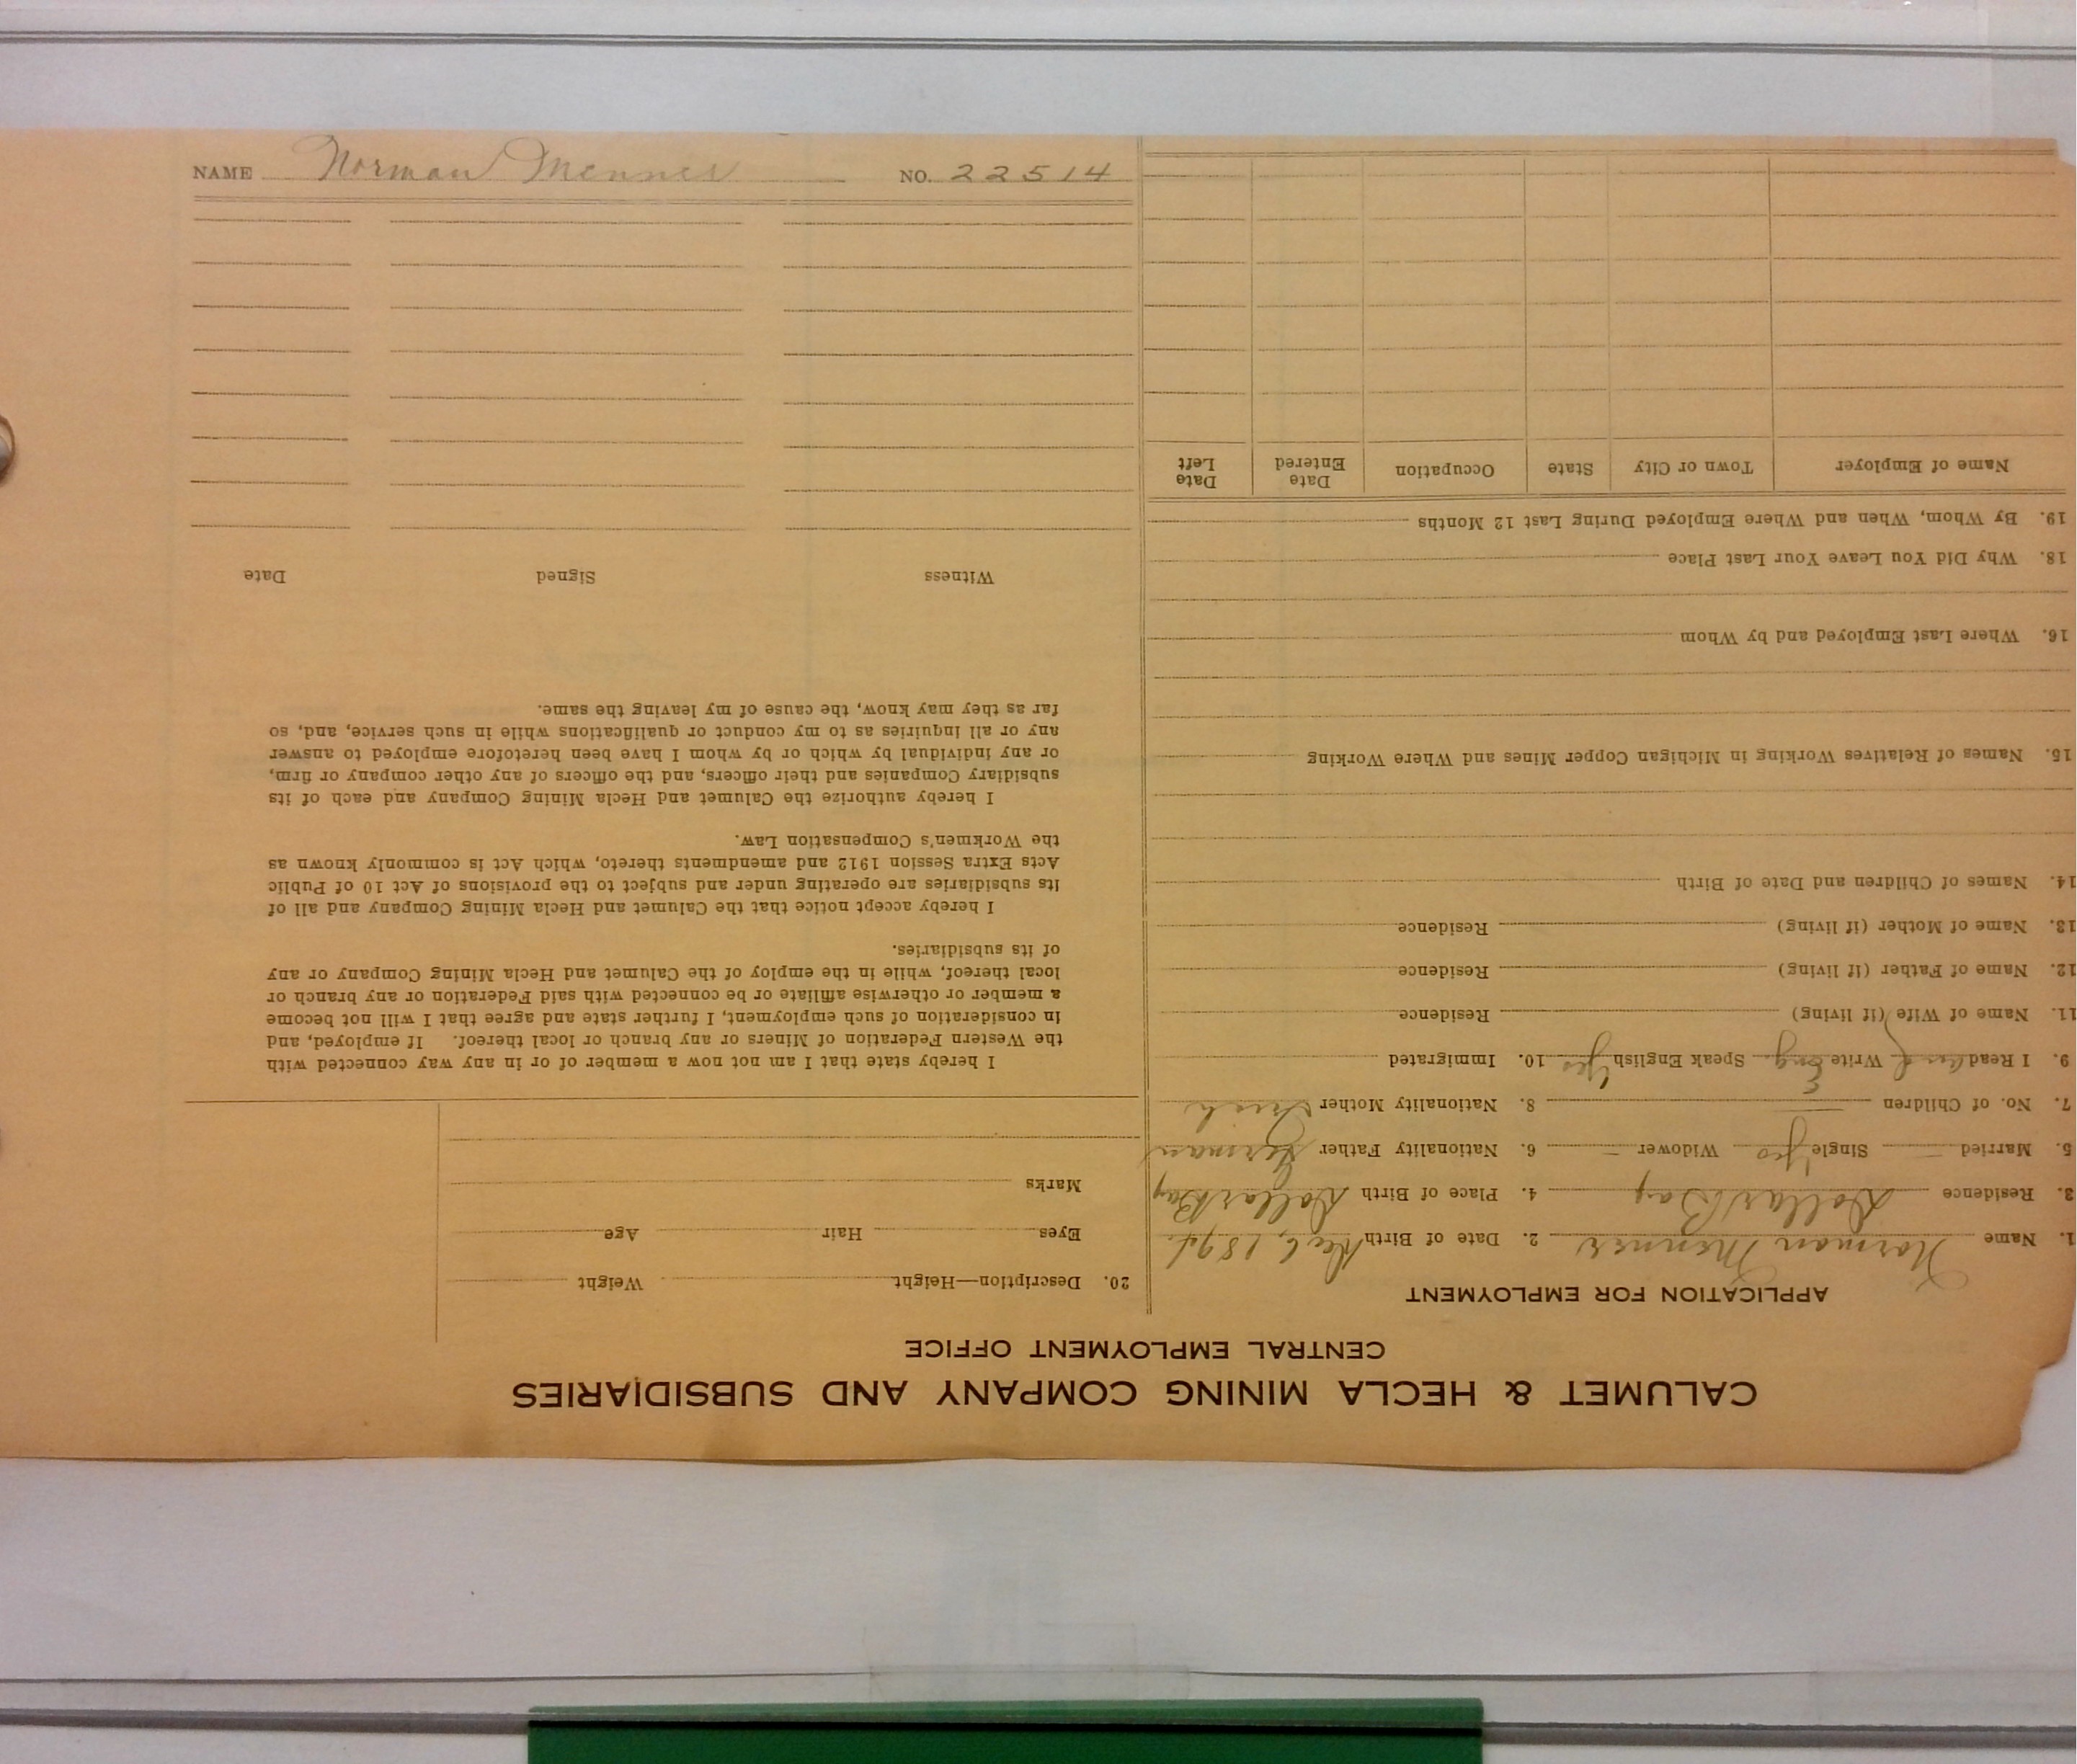 NAME Norman Menner NO. 22514
CALUMET & HECLA MINING COMPANY AND SUBSIDIARIES
CENTRAL EMPLOYMENT OFFICE
APPLICATION FOR EMPLOYMENT
1. Name Norman Menner 2. Date of Birth Dec 6, 189
3. Residence Dollar Bay 4. Place of Birth Dollar Bay
5. Married — Single Yes Widower — 6. Nationality Father German
7. No. of Children — 8. Nationality Mother Irish
9. I Read and Write Eng. Speak English Yes 10. Immigrated
11. Name of Wife (if living) Residence
12. Name of Father (if living) Residence
13. Name of Mother (if living) Residence
14. Names of Children and Date of Birth
15. Names of Relatives Working in Michigan Copper Mines and Where Working
16. Where Last Employed and by Whom
18. Why Did You Leave Your Last Place
19. By Whom, When and Where Employed During Last 12 Months
Name of Employer Town or City State Occupation Date Entered Date Left
20. Description—Height Weight
Eyes Hair Age
Marks
I hereby state that I am not now a member of or in any way connected with
the Western Federation of Miners or any branch or local thereof. If employed, and
in consideration of such employment, I further state and agree that I will not become
a member or otherwise affiliate or be connected with said Federation or any branch or
local thereof, while in the employ of the Calumet and Hecla Mining Company or any
of its subsidiaries.
I hereby accept notice that the Calumet and Hecla Mining Company and all of
its subsidiaries are operating under and subject to the provisions of Act 10 of Public
Acts Extra Session 1912 and amendments thereto, which Act is commonly known as
the Workmen's Compensation Law.
I hereby authorize the Calumet and Hecla Mining Company and each of its
subsidiary Companies and their officers, and the officers of any other company or firm,
or any individual by which or by whom I have been heretofore employed to answer
any or all inquiries as to my conduct or qualifications while in such service, and, so
far as they may know, the cause of my leaving the same.
Witness Signed Date